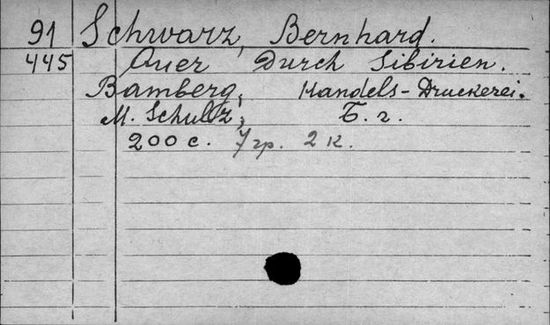 91 Schwarz, Bernhard.
445 Quer Durch Sibirien.
Bamberg, Handels-Druckerei.
M. Schultz, Б. г.
200 с. 7 гр. 2 к.